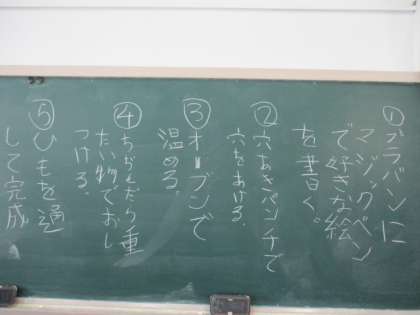 ①プラバンに
マジックペン
で好きな絵
を書く。
②穴あきパンチで
穴をあける。
③オーブンで
温める。
④ちぢんだら重
たい物でおし
つける。
⑤ひもを通
して完成